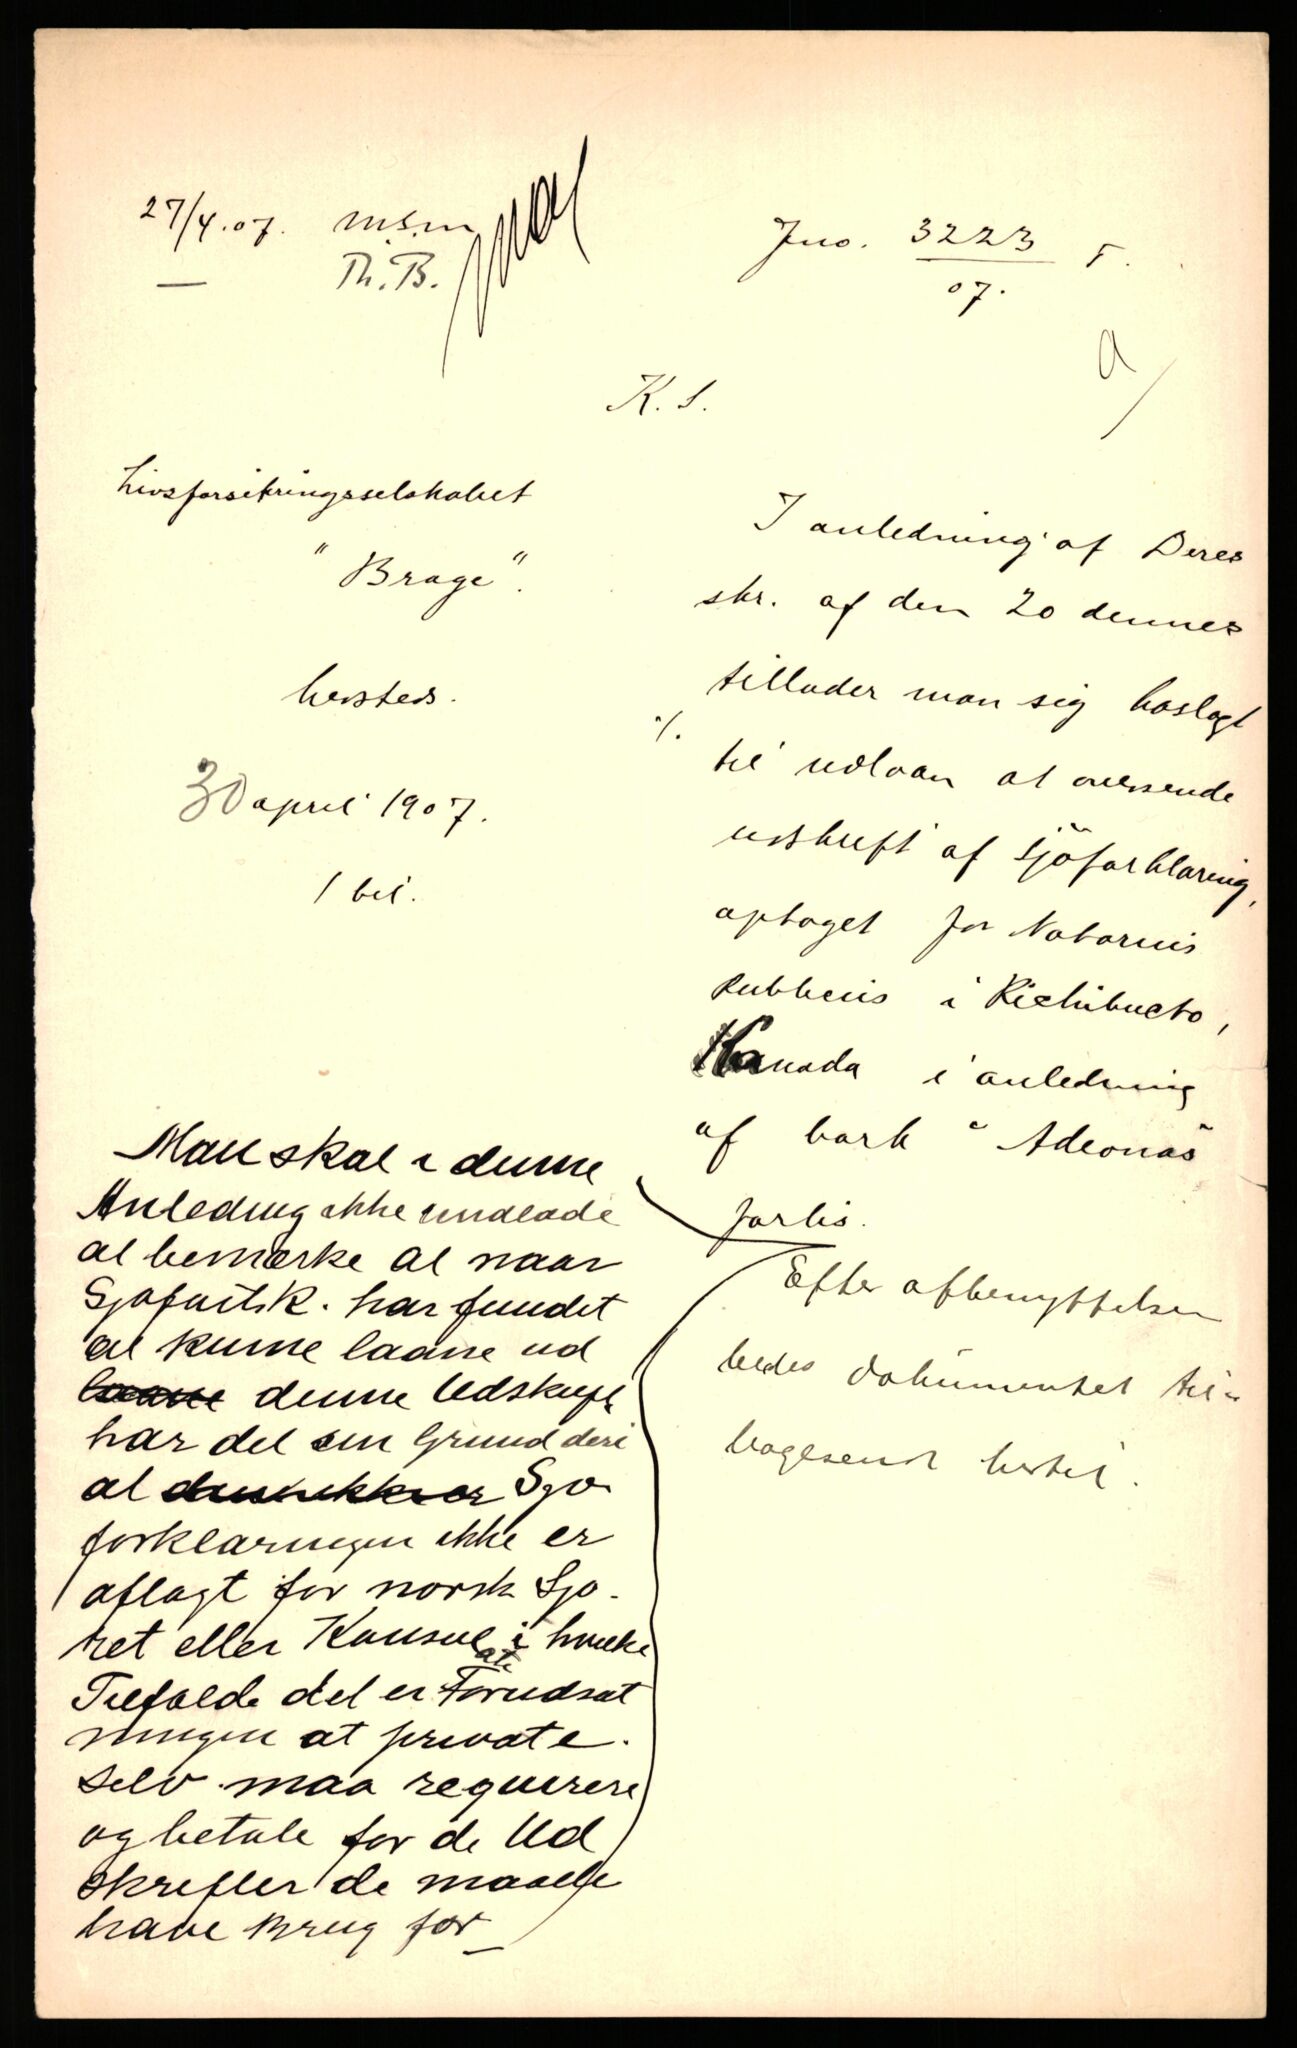 27/4.07. M.S.M
Th.B.
Jno. 3223 F.
07.
K. S.
Livsforsikringsselskabet
"Brage".
hersteds.
30 april 1907.
1 bil.
I anledning af Deres
skr. af den 20 dennes
tillader man sig hoslagt
%. til udlaan at oversende
udskrift af sjöforklaring,
optaget for Notarius
Publicus i Richibucto,
Kanada i anledning
af bark "Adeonas"
forlis.
Efter afbenyttelsen
bedes dokumentet til-
bagesendt hertil.
Man skal i denne
Anledning ikke undlade
at bemærke at naar
Sjøfartsk. har fundet
at kunne laane ud
denne Udskrift
har det sin Grund deri
at Sjø
forklaringen ikke er
aflagt for norsk Sjø-
ret eller Konsul i hvilke
Tilfælde det er Forudsæt
ningen at private
selv maa requirere
og betale for de Ud
skrifter de maatte
have Brug for